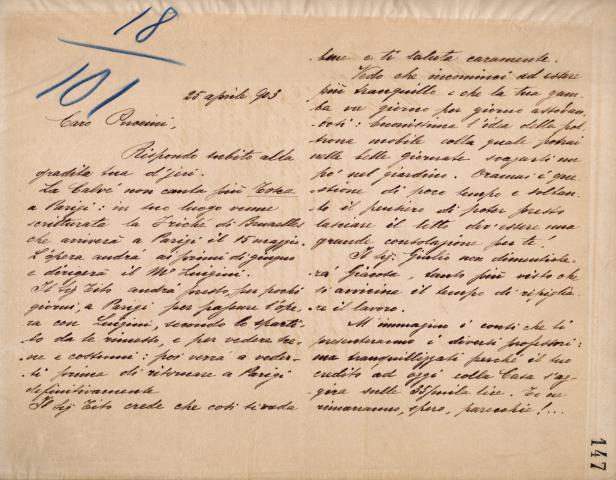 18
101
25 aprile 903
Caro Puccini,
Rispondo subito alla
gradita tua d'jeri.
La Calvé non canta più Tosca
a Parigi: in suo luogo venne
scritturata la Friché di Bruxelles
che arriverà a Parigi il 15 maggio.
L'opera andrà ai primi di giugno
e dirigerà il Mº Luigini.
Il Sig Tito andrà presto, per pochi
giorni, a Parigi per passare l'ope-
ra con Luigini, secondo lo sparti-
to da te rimesso, e per vedere sce-
ne e costumi: poi verrà a veder-
ti prima di ritornare a Parigi
definitivamente
Il Sig Tito crede che così ti vada
bene e ti saluta caramente.
Vedo che incominci ad essere
più tranquillo e che la tua gam-
ba va giorno per giorno assodan-
dosi: buonissima l'idea della pol-
trona mobile colla quale potrai
nelle belle giornate svagarti un
po' nel giardino. Oramai è que-
stione di poco tempo e soltan-
to il pensiere di poter presto
lasciare il letto dev'essere una
grande consolazione per te!
Il Sig. Giulio non dimentiche-
rà Giacosa, tanto più visto che
si avvicina il tempo di ripiglia-
re il lavoro.
M'immagino i conti che ti
presenteranno i diversi professori:
ma tranquillizzati perchè il tuo
credito ad oggi colla Casa s'ag-
gira sulle 35/mila lire. Te ne
rimarranno, spero, parecchie!...
147